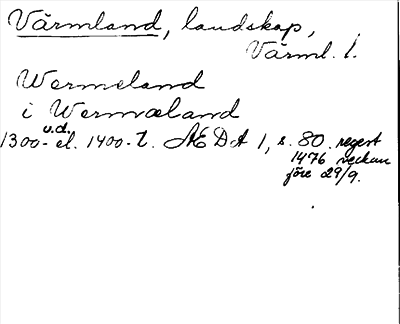 Värmland, landskap,
Värml. l.
Wermeland
i Wermæland
u.d.
1300- el. 1400-t. ÆDA 1, s. 80. regest
1476 veckan
före 29/9.